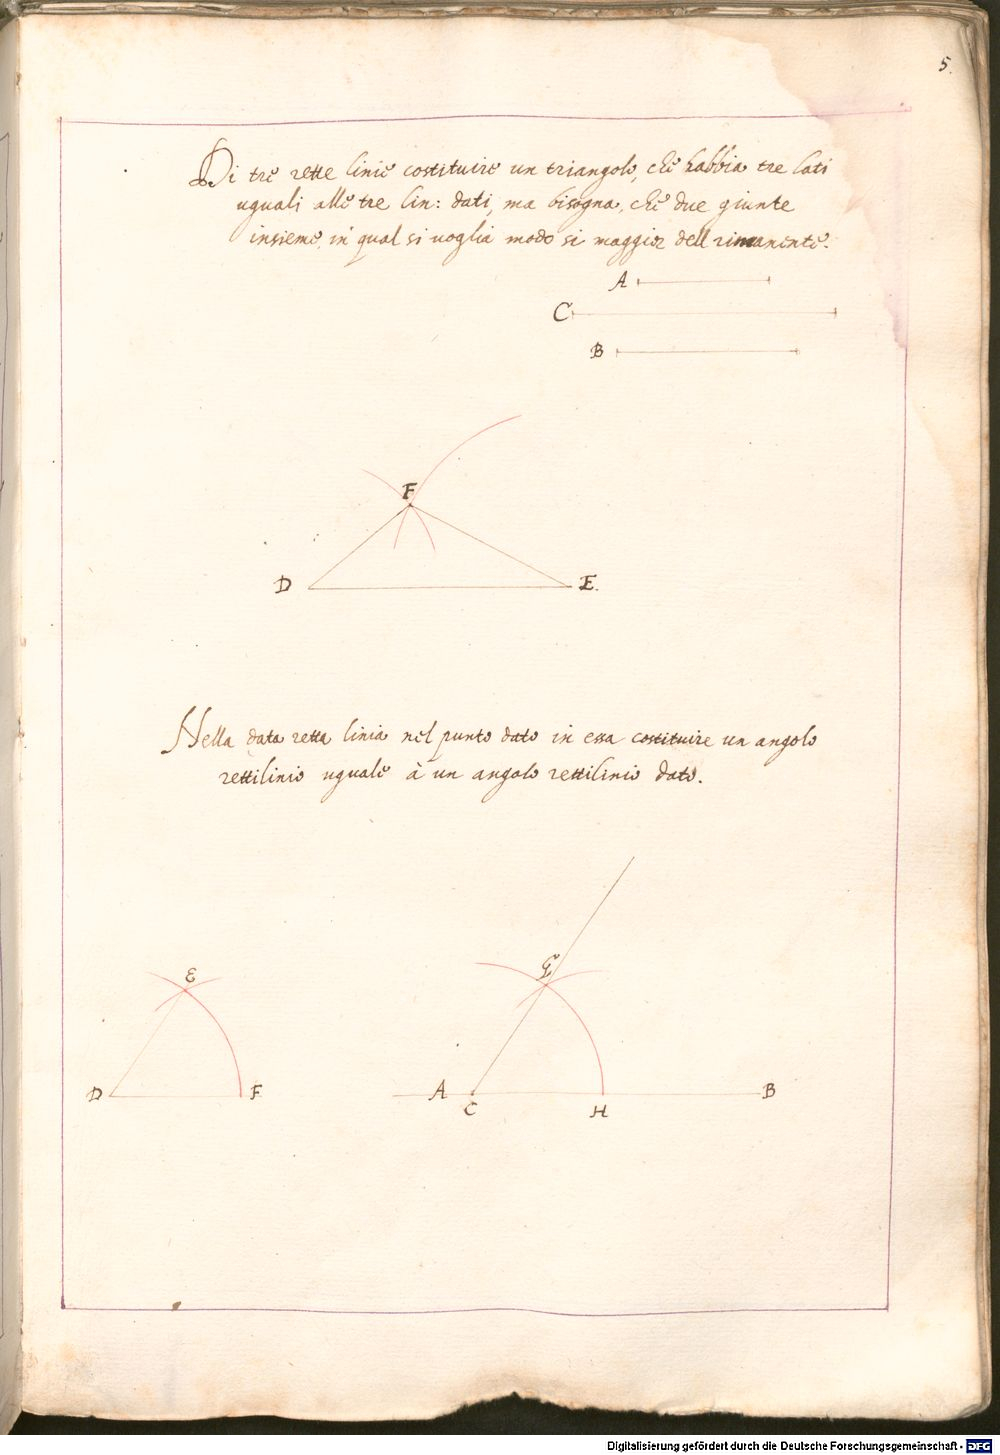 5.
Di tre rette linie costituire un triangolo, che habbia tre lati
uguali alle tre lin: dati, ma bisogna, che due giunte
insieme, in qual si voglia modo si maggior dell rimanente.
A
C
B
F
D E.
Nella data retta linia nel punto dato in essa costituire un angolo
rettilinio uguale à un angolo rettilinio dato.
E G
D F A C H B
Digitalisierung gefördert durch die Deutsche Forschungsgemeinschaft - DFG